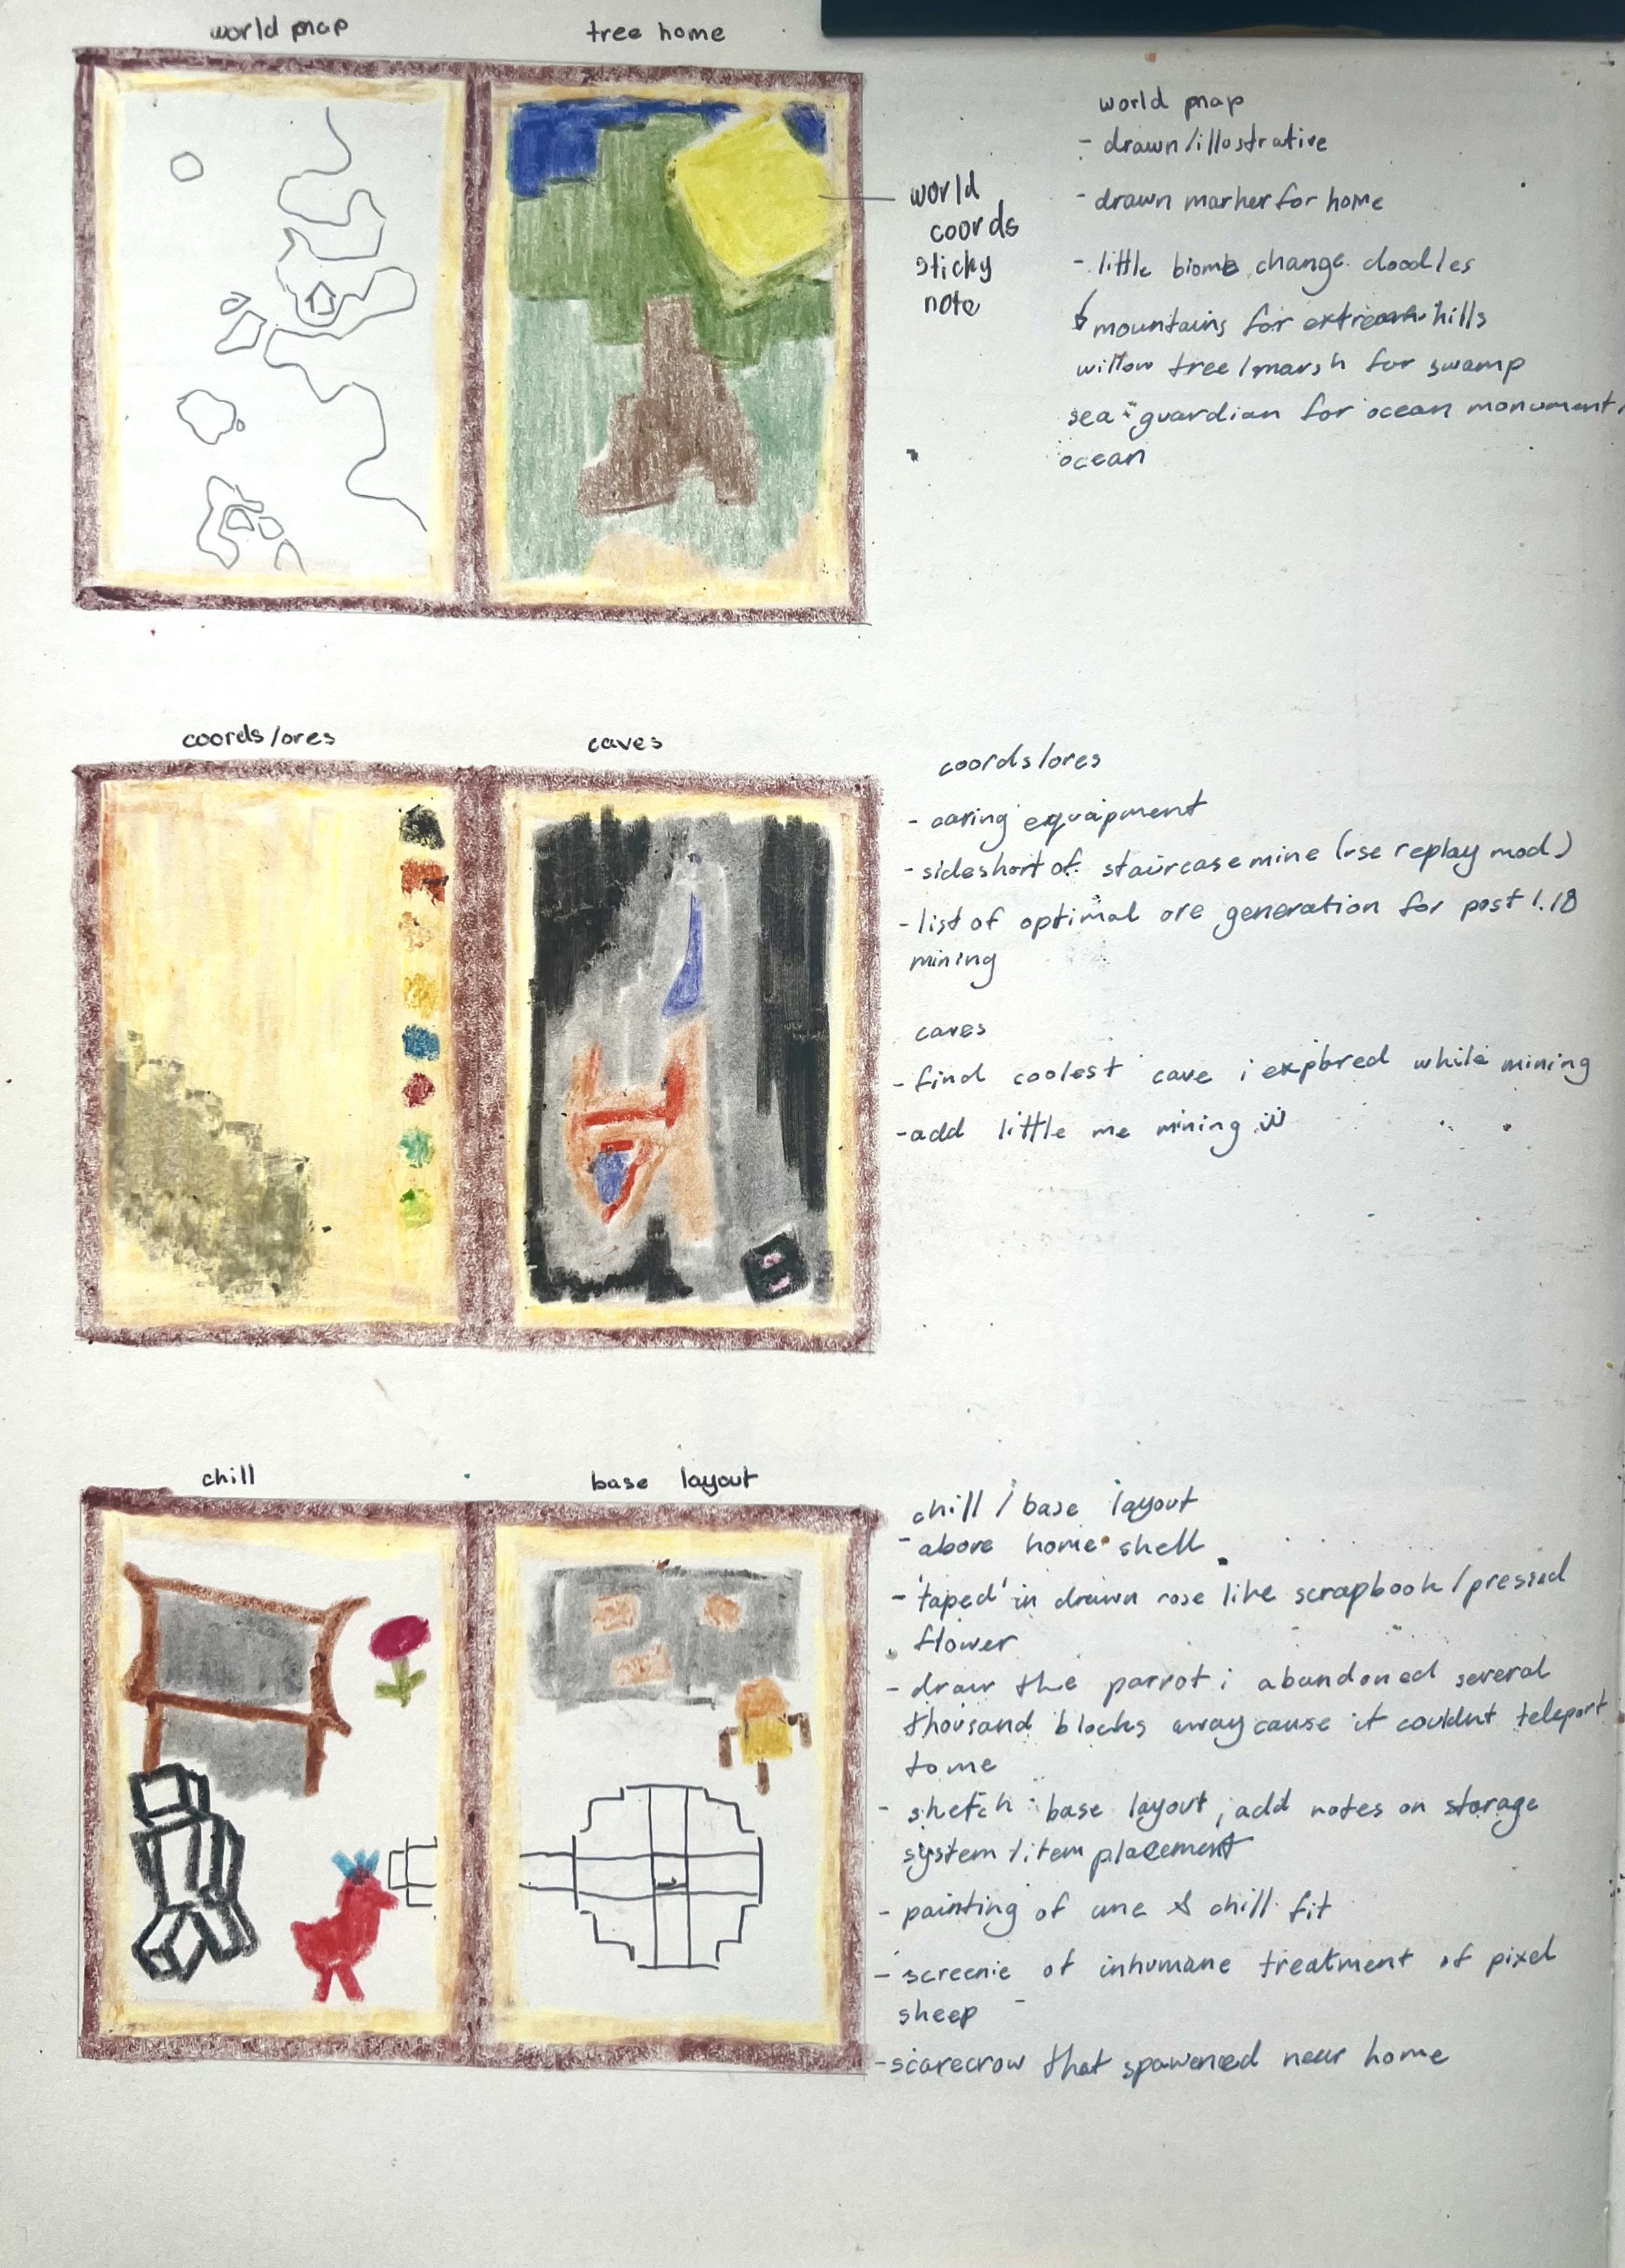 world map
tree home
world
coords
sticky
note
world map
- drawn/illustrative
- drawn marker for home
- little biome change doodles
mountains for extreme hills
willow tree/marsh for swamp
sea guardian for ocean monument/
ocean
coords/ores
caves
coords/ores
- caving equipment
- sideshort of staircase mine (use replay mod)
- list of optimal ore generation for post 1.18
mining
caves
- find coolest cave i explored while mining
- add little me mining
chill
base layout
chill / base layout
- above home shell
- 'taped' in drawn rose like scrapbook/pressed
flower
- draw the parrot i abandoned several
thousand blocks away cause it couldnt teleport
to me
- sketch base layout, add notes on storage
system/item placement
- painting of me & chill fit
- screenie of inhumane treatment of pixel
sheep
- scarecrow that spawned near home